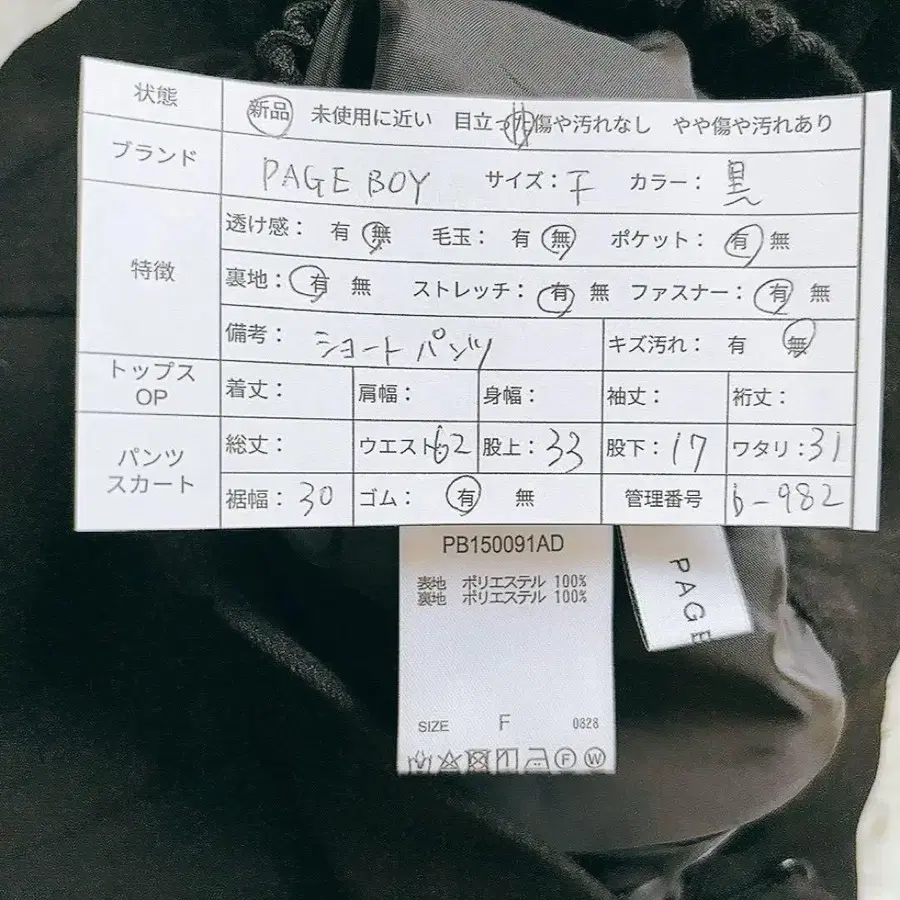 状態 新品 未使用に近い 目立った傷や汚れなし やや傷や汚れあり
ブランド PAGE BOY サイズ：F カラー：黒
特徴 透け感： 有 無 毛玉： 有 無 ポケット： 有 無
裏地： 有 無 ストレッチ： 有 無 ファスナー： 有 無
備考： ショートパンツ キズ汚れ： 有 無
トップス OP 着丈： 肩幅： 身幅： 袖丈： 裄丈：
パンツ スカート 総丈： ウエスト：62 股上：33 股下：17 ワタリ：31
裾幅：30 ゴム： 有 無 管理番号 b-982
PB150091AD
表地 ポリエステル 100%
裏地 ポリエステル 100%
SIZE F 0828
F W
PAGE